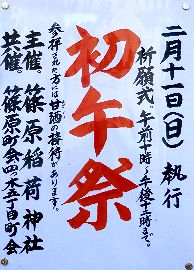 二月十一日(日) 執行
祈願式、午前十時~午後十二時まで。
初午祭
参拝された方には甘酒の接待があります。
主催。篠原稲荷神社
共催。篠原町会四本三丁目町会